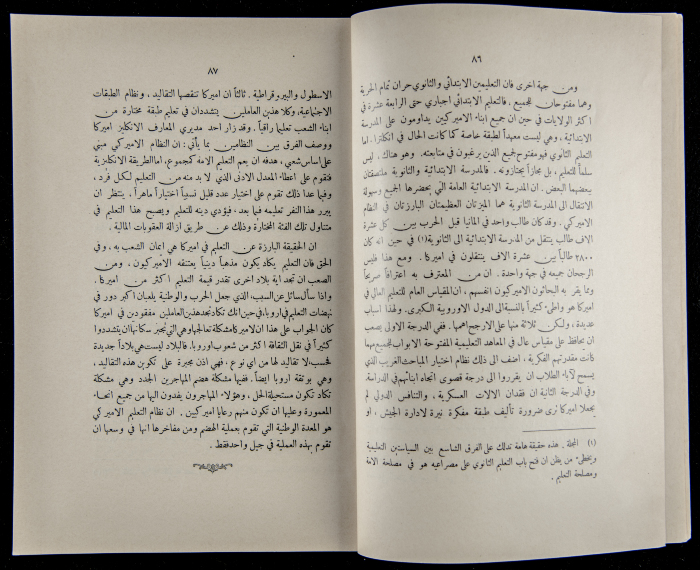 ٨٦
ومن جهة اخرى فان التعليمين الابتدائي والثانوي حران تمام الحرية
وهما مفتوحان للجميع . فالتعليم الابتدائي اجباري حتى الرابعة عشرة في
اكثر الولايات في حين ان جميع ابناء الاميركيين يداومون على المدرسة
الابتدائية ، وهي ليست معهداً لطبقة خاصة كما كانت الحال في انكلترا. اما
التعليم الثانوي فهو مفتوح لجميع الذين يرغبون في متابعته . وهو هناك ، ليس
سلماً للتعليم ، بل مجازاً يجتازونه . فالمدرسة الابتدائية والثانوية ملتصقتان
ببعضهما البعض . ان المدرسة الابتدائية العامة التي يحضرها الجميع وسهولة
الانتقال الى المدرسة الثانوية هما الميزتان العظيمتان البارزتان في النظام
الاميركي . وقد كان طالب واحد في المانيا قبل الحرب بين كل عشرة
الاف طالب ينتقل من المدرسة الابتدائية الى الثانوية (١) في حين انه كان
٢٨٠٠ طالباً بين عشرة الاف ينتقلون في اميركا . ومع هذا فليس
الرجحان جميعه في جهة واحدة . ان من المعترف به اعترافاً صريحاً
ومما يقر به الباحثون الاميركيون انفسهم ، ان المقياس العام للتعليم العالي في
اميركا هو واطىء كثيراً بالنسبة الى الدول الاوروبية الكبرى . ولهذا اسباب
عديدة ، ولكن ثلاثة منها على الارجح اهمها . ففي الدرجة الاولى يصعب
ان يحافظ على مقياس عال في المعاهد التعليمية المفتوحة الابواب لجميع مهما
كانت مقدرتهم الفكرية . اضف الى ذلك نظام اختيار المباحث الغريب الذي
يسمح لآباء الطلاب ان يقرروا الى درجة قصوى اتجاه ابنائهم في الدراسة .
وفي الدرجة الثانية ان فقدان الالات العسكرية . والتنافس الدولي لم
يجعلا اميركا ترى ضرورة تأليف طبقة مفكرة نيرة لادارة الجيش ، او
(١) المجلة . هذه حقيقة هامة تدلك على الفرق الشاسع بين السياستين التعليمية
ويخطىء من يظن ان فتح باب التعليم الثانوي على مصراعيه هو في مصلحة الامة
ومصلحة التعليم .
٨٧
الاسطول والبيروقراطية . ثالثاً ان اميركا تنقصها التقاليد ، ونظام الطبقات
الاجتماعية ، وكلا هذين العاملين يتشددان في تعليم طبقة مختارة من
ابناء الشعب تعليما راقياً . وقد زار احد مديري المعارف الانكليز اميركا
ووصف الفرق بين النظامين بما يأتي : ان النظام الاميركي مبني
على اساس شعبي ، هدفه ان يعم التعليم الامة كمجموع ، اما الطريقة الانكليزية
فتقوم على اعطاء المعدل الادنى الذي لا بد منه من التعليم لكل فرد ،
وفيما عدا ذلك تقوم على اختيار عدد قليل نسبياً اختياراً ماهراً ، ينتظر ان
يبرر هذا النفر تعليمه فيما بعد ، فيؤدي دينه للتعليم ويصبح هذا التعليم في
متناول تلك الفئة المختارة وذلك عن طريق ازالة العقوبات المالية .
ان الحقيقة البارزة عن التعليم في اميركا هي ايمان الشعب به ، وفي
الحق فان التعليم يكاد يكون مذهباً دينياً يعتنقه الاميركيون ، ومن
الصعب ان تجد اية بلاد اخرى تقدر قيمة التعليم اكثر من اميركا .
واذا سأل سائل عن السبب ، الذي جعل الحرب والوطنية يلعبان اكبر دور في
نهضات التعليم في اوربا ، في حين انك تكاد تجد هذين العاملين مفقودين في اميركا
كان الجواب على هذا ان لاميركا مشكلة تعالجها وهي التي تجبر سكانها ان يتشددوا
كثيراً في نقل الثقافة اكثر من شعوب اوروبا . فالبلاد ليست هي بلاداً جديدة
فحسب لا تقاليد لها من اي نوع ، فهي اذن مجبرة على تكوين هذه التقاليد ،
وهي بوتقة اوربا ايضاً . ففيها مشكلة هضم المهاجرين الجدد وهي مشكلة
تكاد تكون مستحيلة الحل ، وهؤلاء المهاجرون يفدون اليها من جميع انحاء
المعمورة وعليها ان تكون منهم رعايا اميركيين . ان نظام التعليم الاميركي
هو المعدة الوطنية التي تقوم بعملية الهضم ومن مفاخرها انها في وسعها ان
تقوم بهذه العملية في جيل واحد فقط .